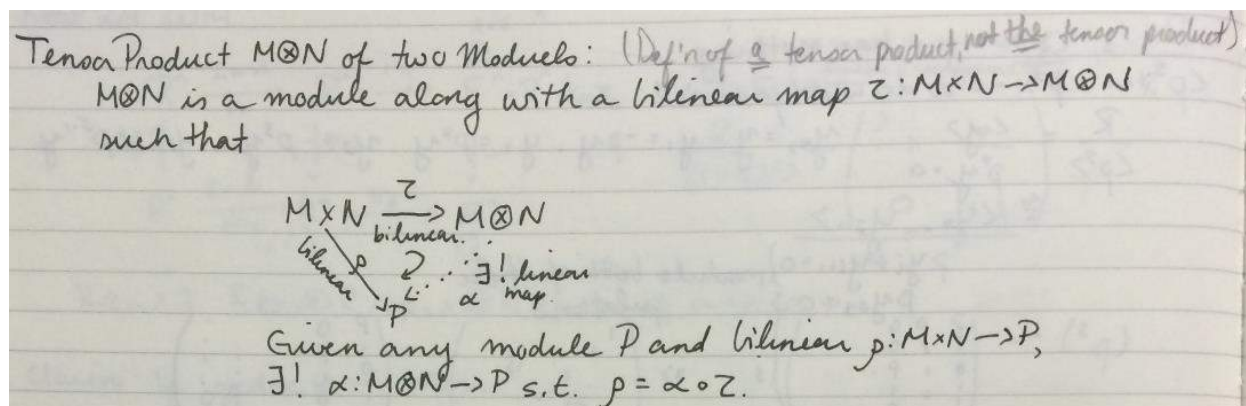 Tensor Product M⊗N of two Moduels: (Def'n of a tensor product, not the tensor product)
M⊗N is a module along with a bilinear map τ: M×N→M⊗N
such that
τ
M×N → M⊗N
bilinear.
bilinear ρ ∃! linear
α map.
P
Given any module P and bilinear ρ: M×N→P,
∃! α: M⊗N→P s.t. ρ = α∘τ.